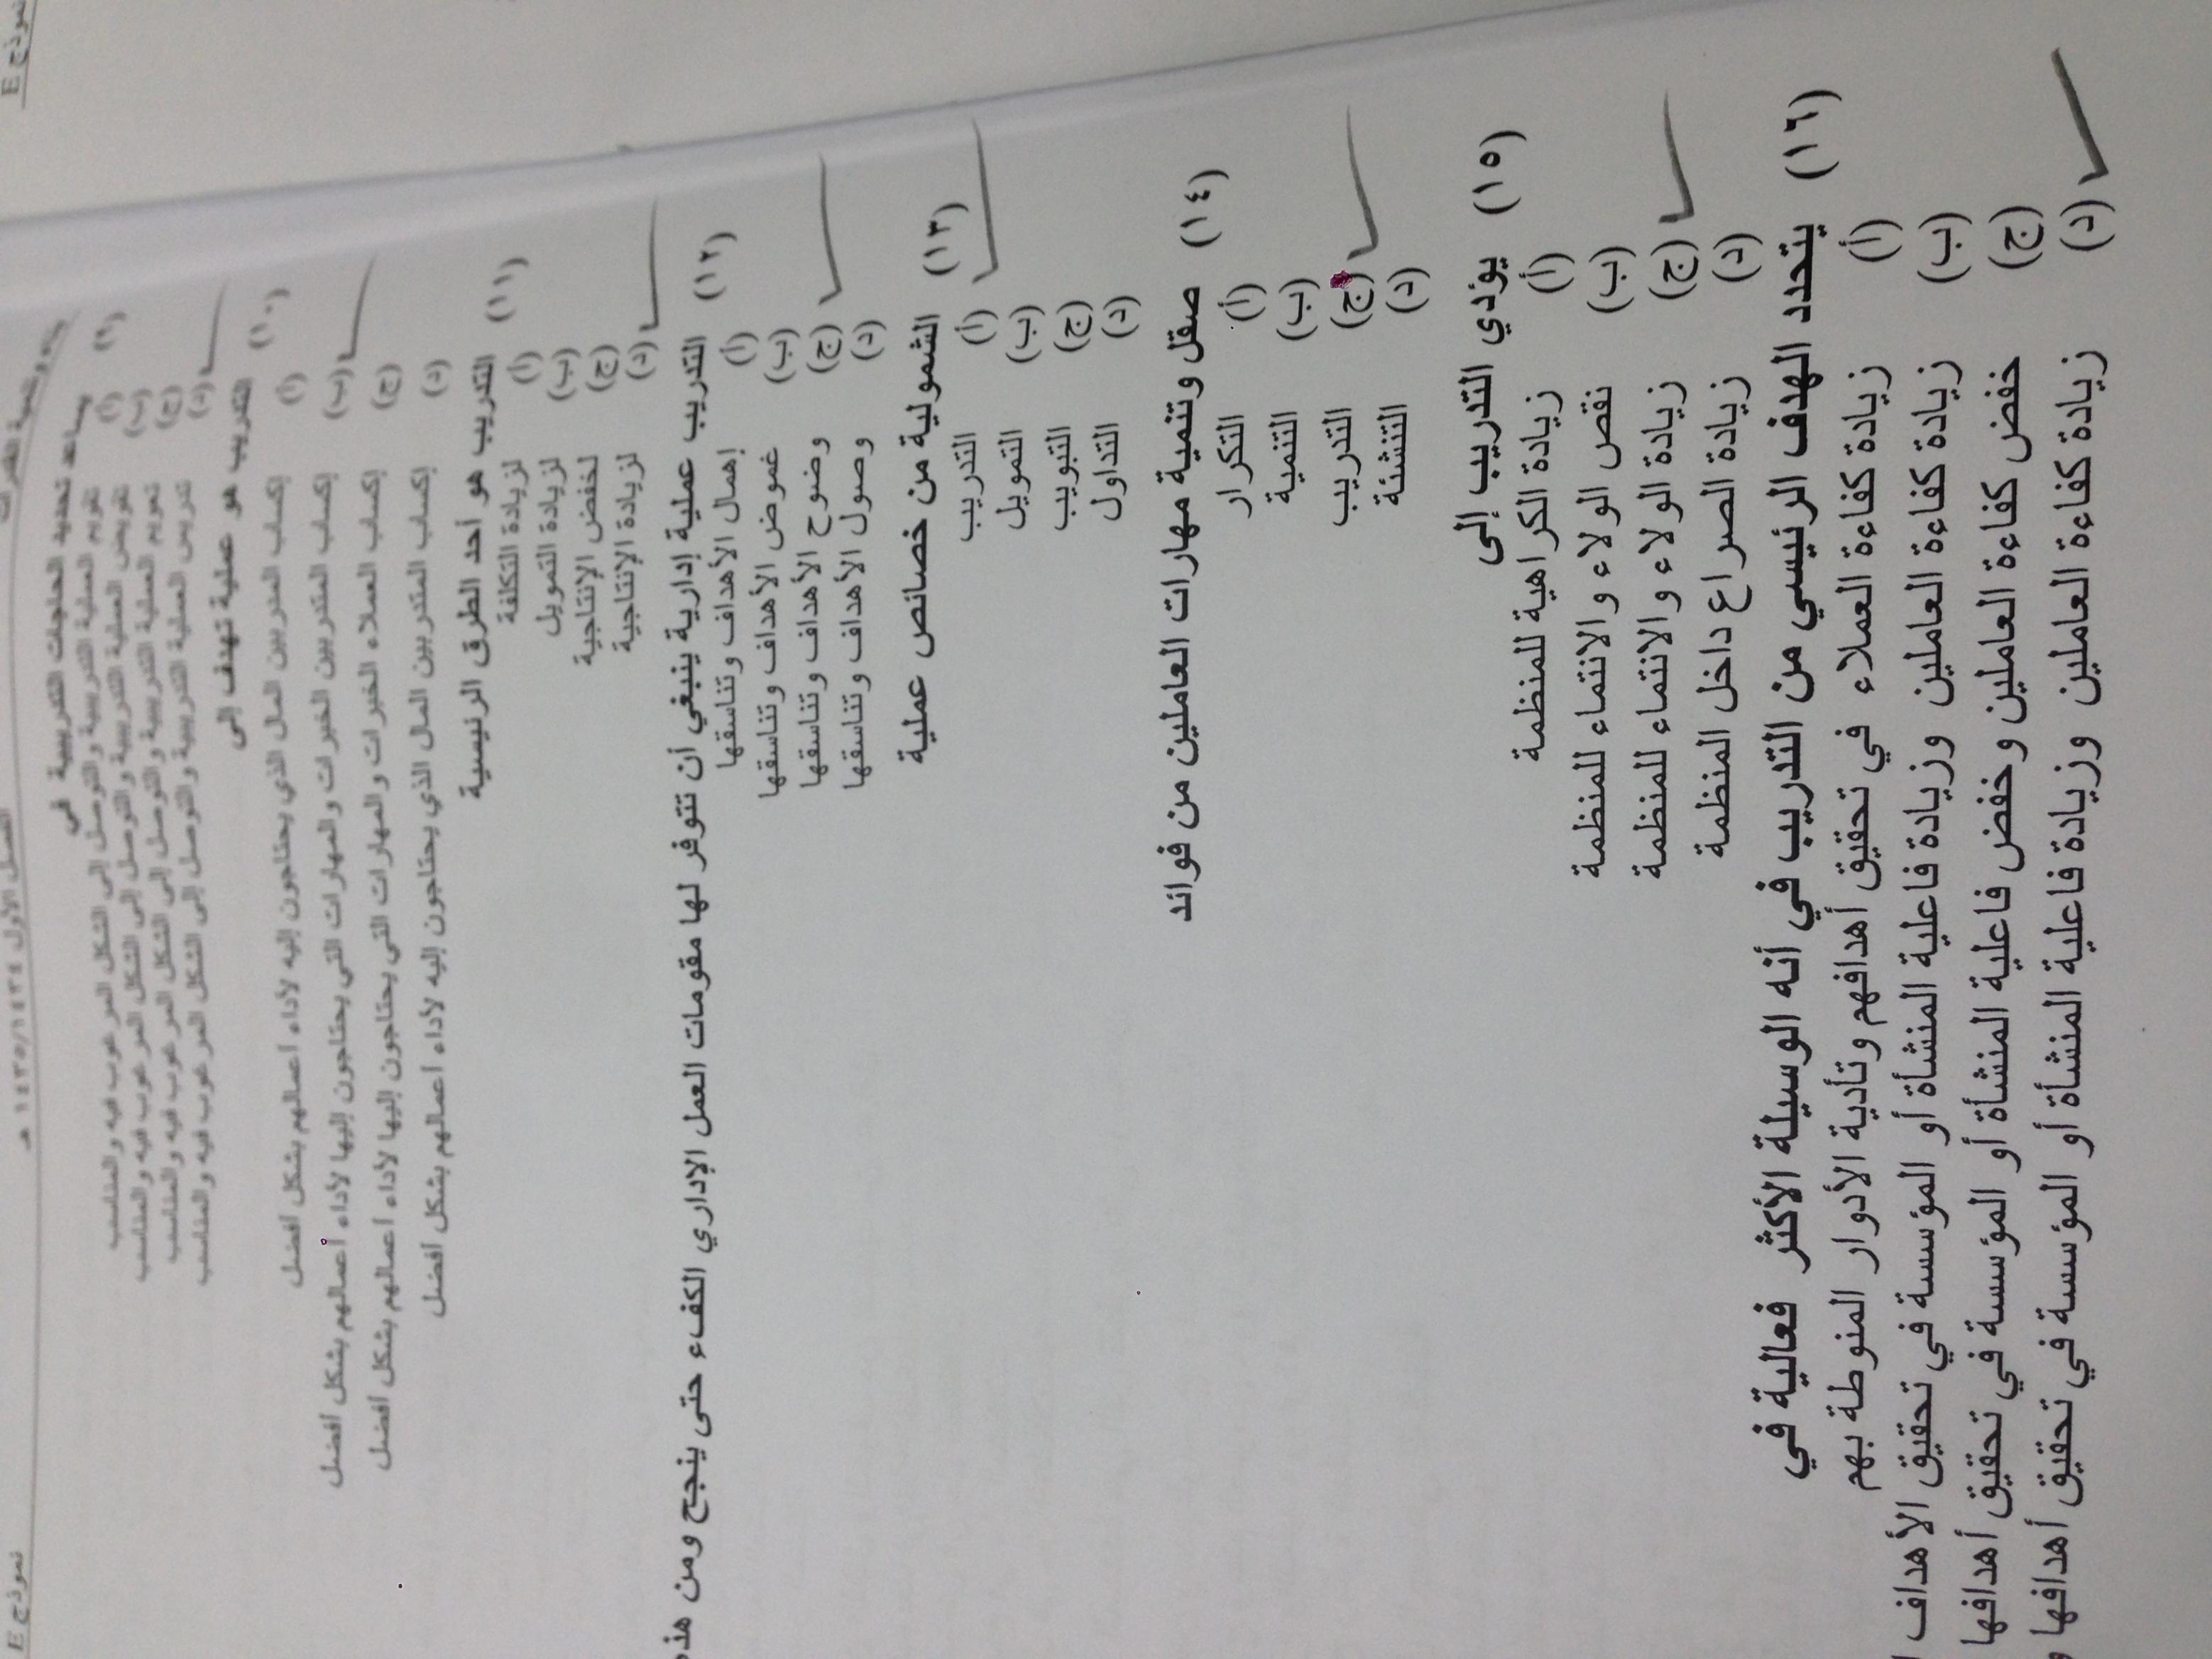 نموذج E
نموذج E
الفصل الأول ١٤٣٤/١٤٣٥ هـ
(٩) يساعد تحديد الحاجات التدريبية في
(أ) تقويم العملية التدريبية والتوصل إلى الشكل المرغوب فيه والمناسب
(ب) تفويض العملية التدريبية والتوصل إلى الشكل المرغوب فيه والمناسب
(ج) تعويم العملية التدريبية والتوصل إلى الشكل المرغوب فيه والمناسب
(د) تدريس العملية التدريبية والتوصل إلى الشكل المرغوب فيه والمناسب
(١٠) التدريب هو عملية تهدف إلى
(أ) إكساب المتدربين المال الذي يحتاجون إليه لأداء أعمالهم بشكل أفضل
(ب) إكساب المتدربين الخبرات والمهارات التي يحتاجون إليها لأداء أعمالهم بشكل أفضل
(ج) إكساب العملاء الخبرات والمهارات التي يحتاجون إليها لأداء أعمالهم بشكل أفضل
(د) إكساب المتدربين المال الذي يحتاجون إليه لأداء أعمالهم بشكل أفضل
(١١) التدريب هو أحد الطرق الرئيسية
(أ) لزيادة التكلفة
(ب) لزيادة التمويل
(ج) لخفض الإنتاجية
(د) لزيادة الإنتاجية
(١٢) التدريب عملية إدارية ينبغي أن تتوفر لها مقومات العمل الإداري الكفء حتى ينجح ومن هذه
(أ) إهمال الأهداف وتناسقها
(ب) غموض الأهداف وتناسقها
(ج) وضوح الأهداف وتناسقها
(د) وصول الأهداف وتناسقها
(١٣) الشمولية من خصائص عملية
(أ) التدريب
(ب) التمويل
(ج) التبويب
(د) التداول
(١٤) صقل وتنمية مهارات العاملين من فوائد
(أ) التكرار
(ب) التنمية
(ج) التدريب
(د) التنشئة
(١٥) يؤدي التدريب إلى
(أ) زيادة الكراهية للمنظمة
(ب) نقص الولاء والانتماء للمنظمة
(ج) زيادة الولاء والانتماء للمنظمة
(د) زيادة الصراع داخل المنظمة
(١٦) يتحدد الهدف الرئيسي من التدريب في أنه الوسيلة الأكثر فعالية في
(أ) زيادة كفاءة العملاء في تحقيق أهدافهم وتأدية الأدوار المنوطة بهم
(ب) زيادة كفاءة العاملين وزيادة فاعلية المنشأة أو المؤسسة في تحقيق الأهداف
(ج) خفض كفاءة العاملين وخفض فاعلية المنشأة أو المؤسسة في تحقيق أهدافها
(د) زيادة كفاءة العاملين وزيادة فاعلية المنشأة أو المؤسسة في تحقيق أهدافها